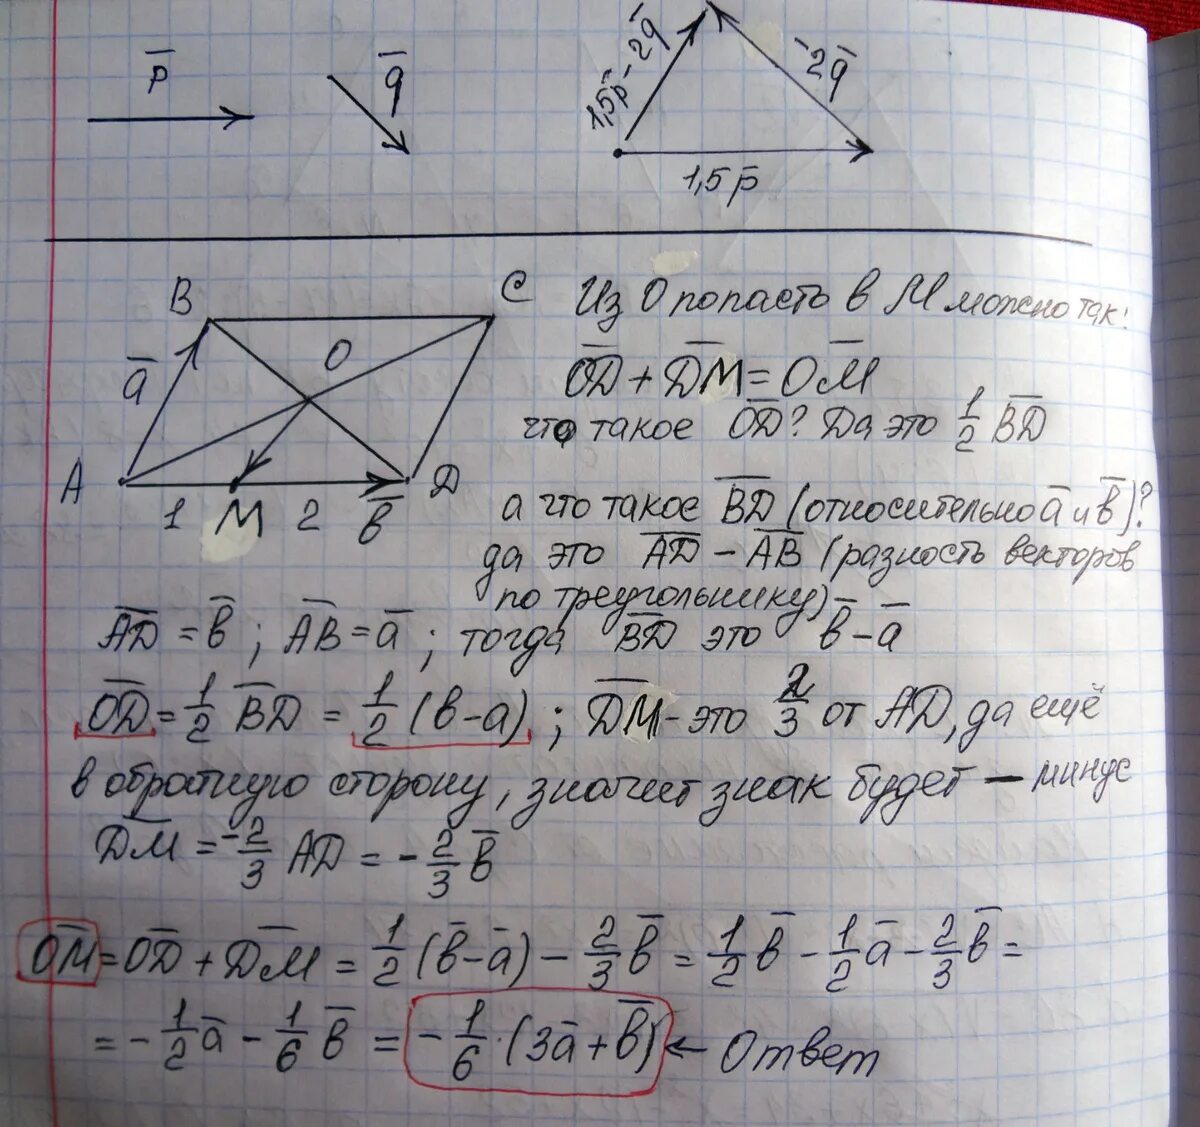 p̅ q̅ 1,5p̅-2q̅ -2q̅
1,5p̅
B C
a̅ O
A 1 M 2 b̅ D
Из О попасть в М можно так:
O̅D̅ + D̅M̅ = O̅M̅
что такое O̅D̅? Да это 1/2 B̅D̅
а что такое B̅D̅ (относительно a̅ и b̅)?
да это A̅D̅ - A̅B̅ (разность векторов
по треугольнику)
A̅D̅ = b̅; A̅B̅ = a̅; тогда B̅D̅ это b̅-a̅
O̅D̅ = 1/2 B̅D̅ = 1/2 (b-a); D̅M̅ - это 2/3 от AD, да ещё
в обратную сторону, значит знак будет — минус
D̅M̅ = -2/3 AD = -2/3 b̅
O̅M̅ = O̅D̅ + D̅M̅ = 1/2 (b̅-a̅) - 2/3 b̅ = 1/2 b̅ - 1/2 a̅ - 2/3 b̅ =
= -1/2 a̅ - 1/6 b̅ = -1/6 · (3a̅ + b̅) ← Ответ